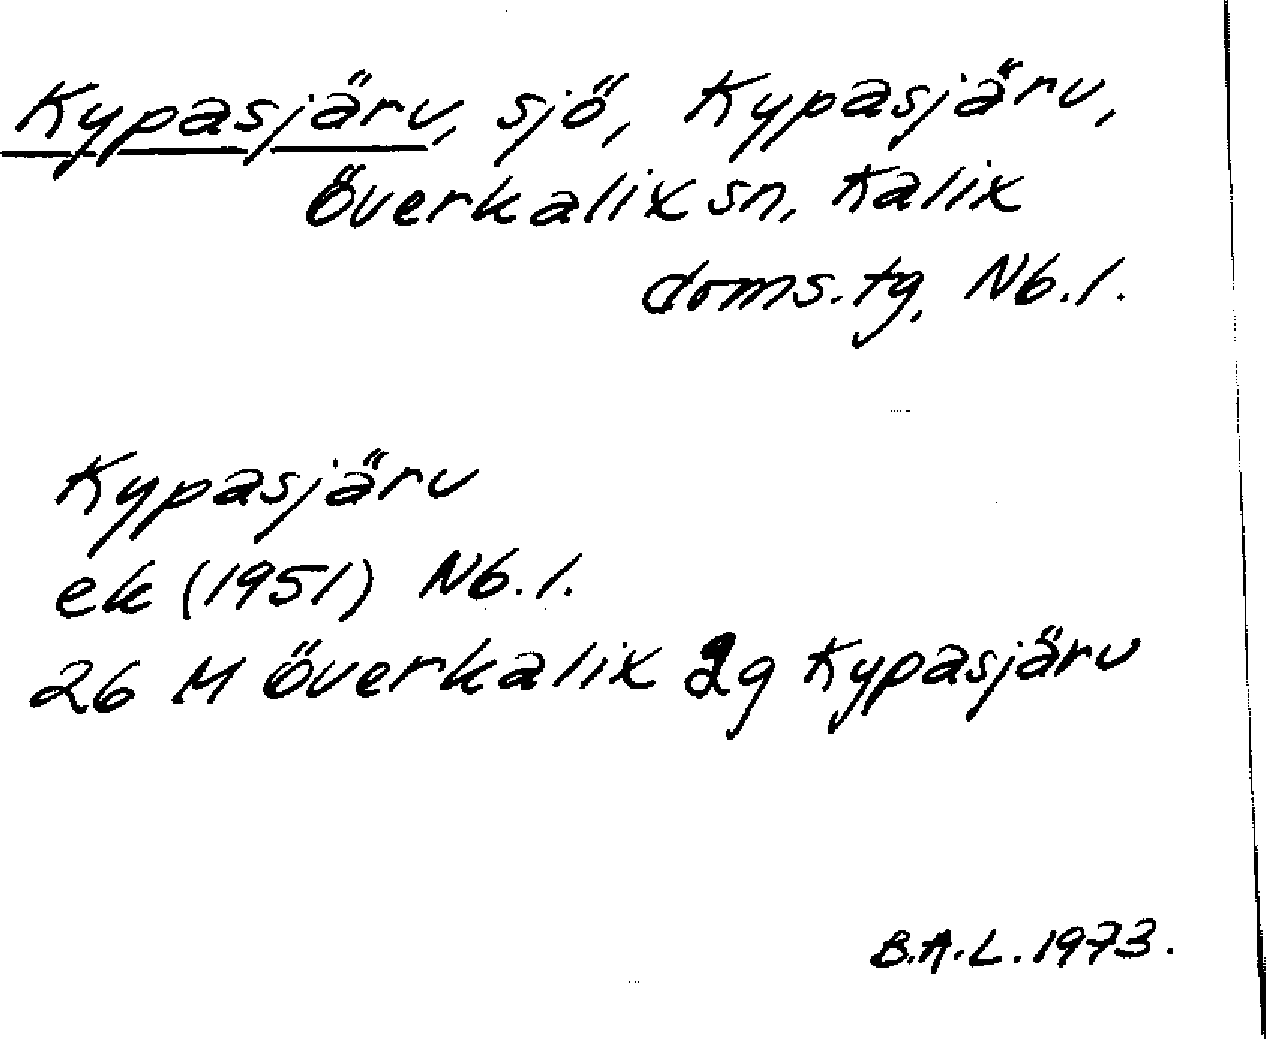 Kypasjärv, sjö, Kypasjärv,
Överkalix sn, Kalix
doms.tg, Nb.l.
Kypasjärv
ek (1951) Nb.l.
26 M Överkalix 2g Kypasjärv
B.A.L. 1973.